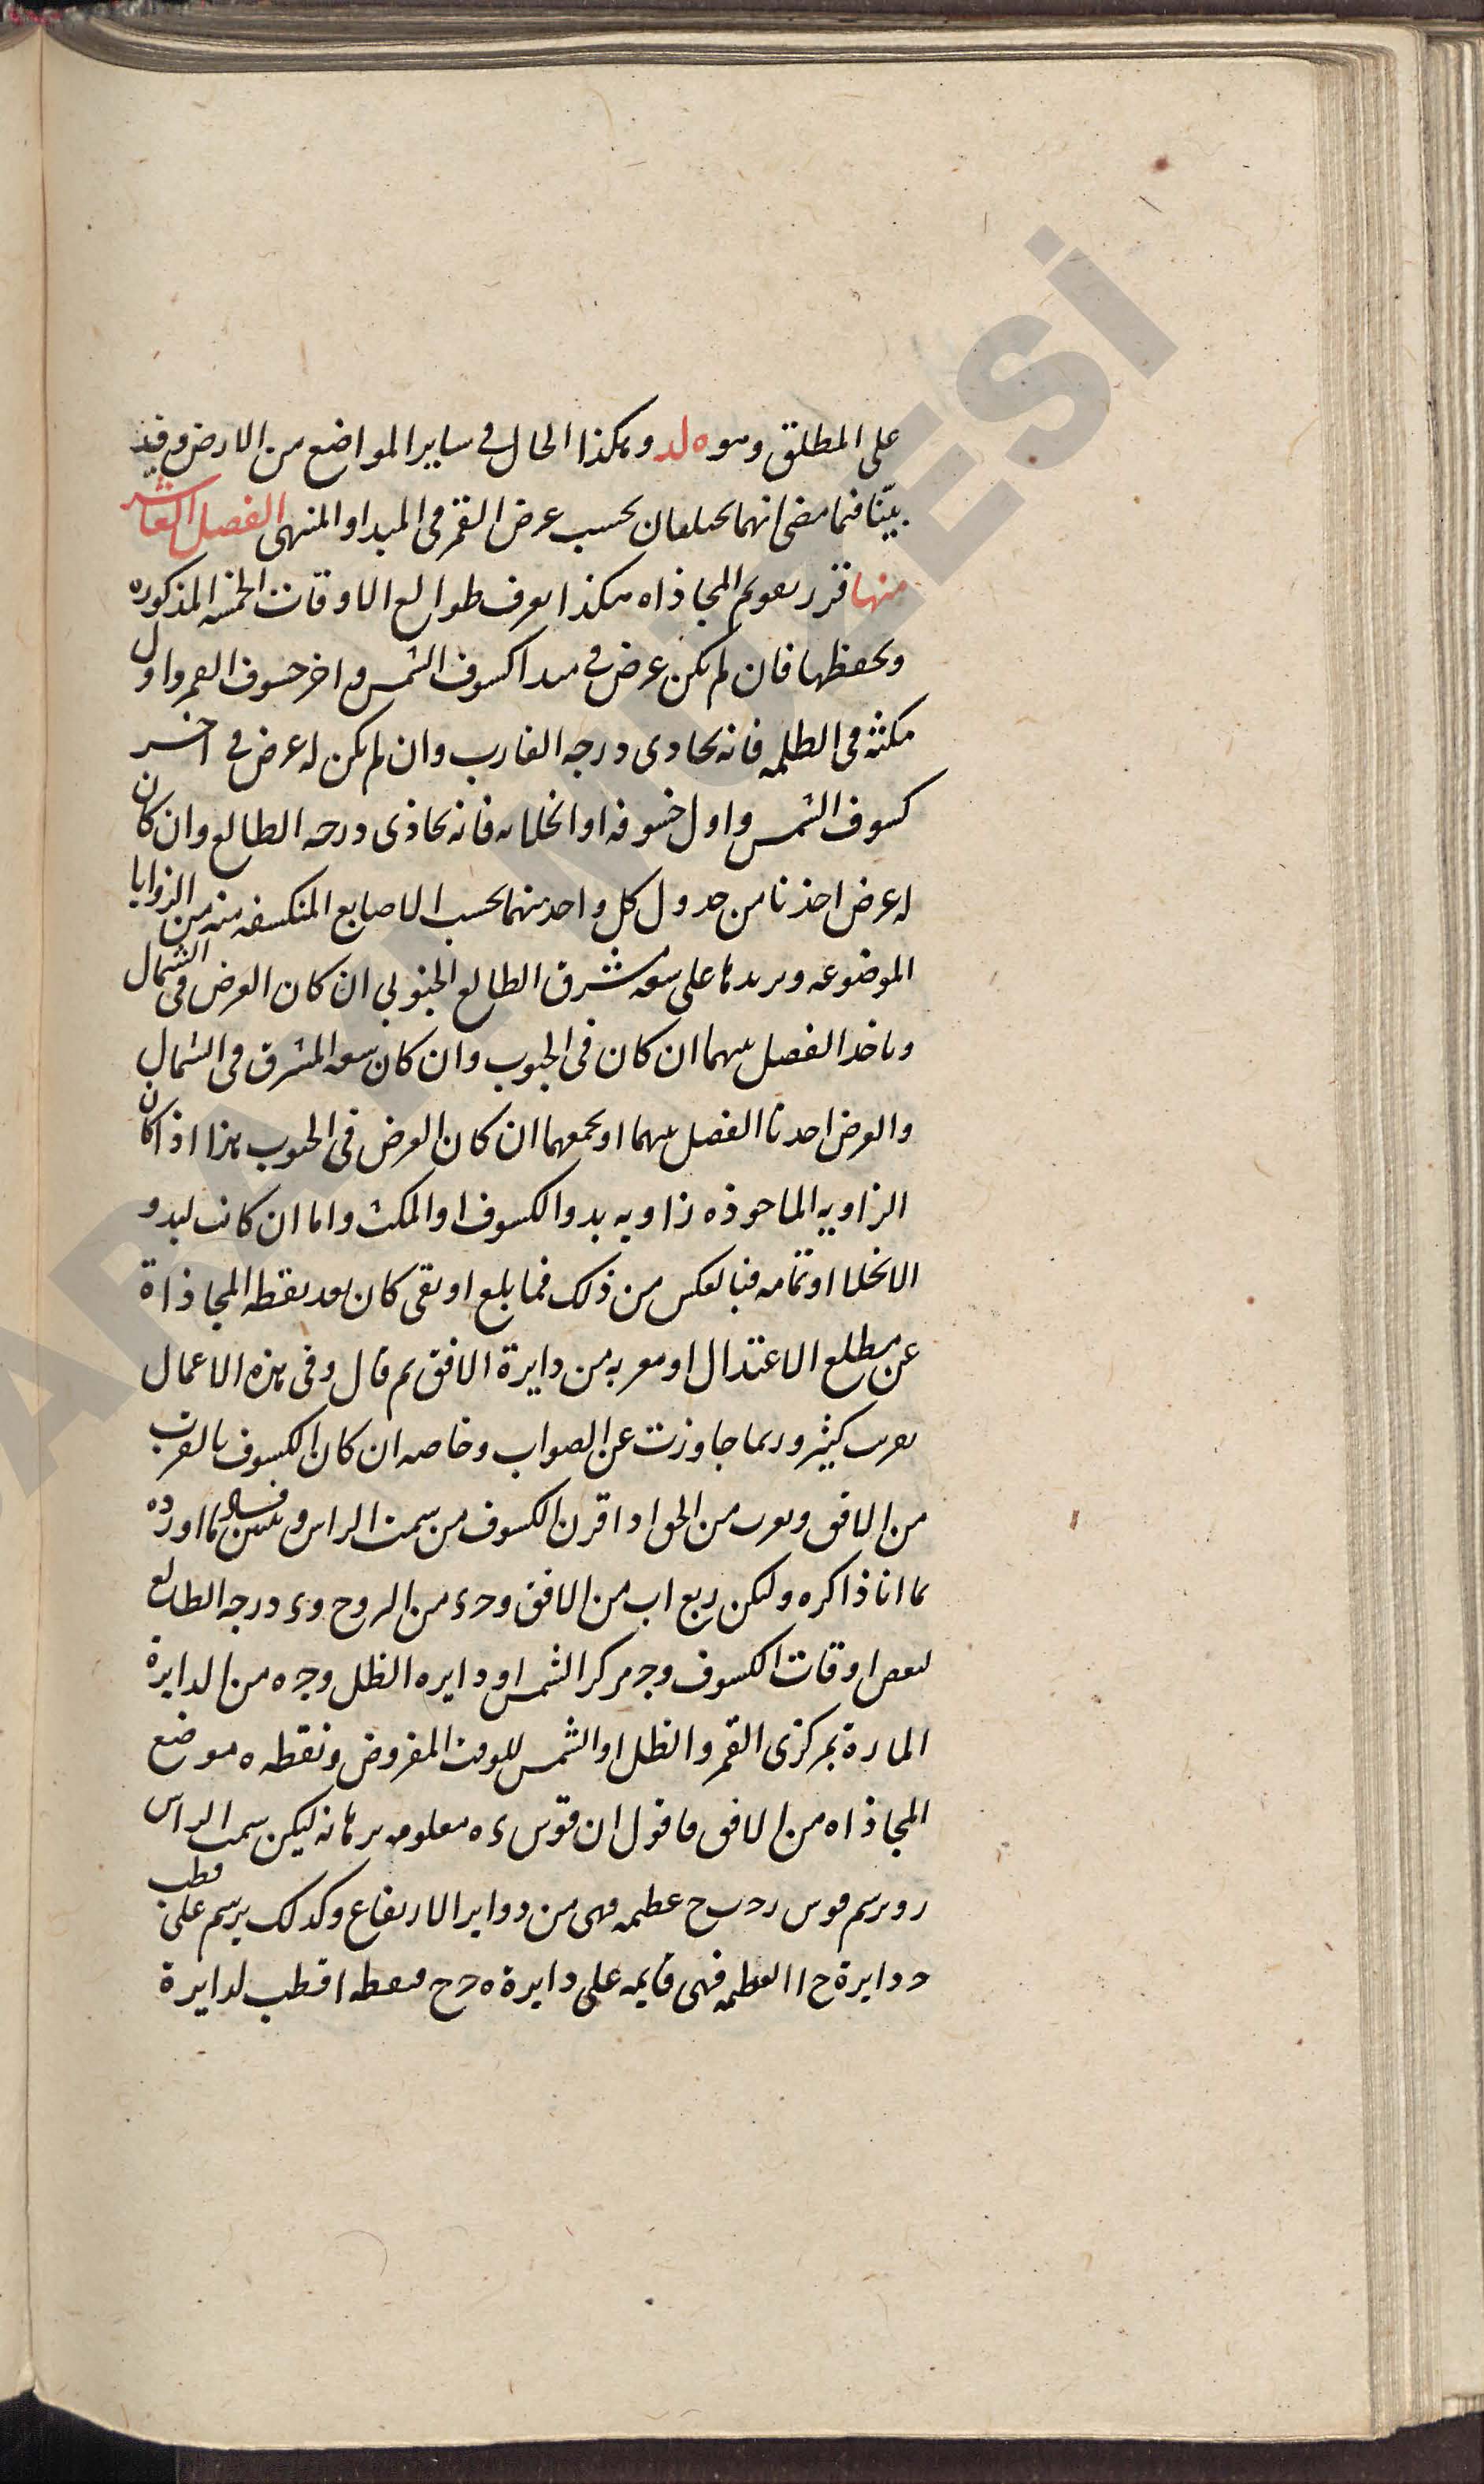 على المطلق وهو ه لد وهكذا الحال فى ساير المواضع من الارض وقد
بيّنا فيما مضى انهما يختلفان بحسب عرض القمر فى المبدا والمنتهى الفصل العاشر
منها قرر تقويم المحاذاه هكذا نعرف طوالع الاوقات الخمسه المذكوره
ونحفظها فان لم يكن عرض فى مبدا كسوف الشمس واخر خسوف القمر واول
مكثه فى الظلمه فانه يحاذى درجه الغارب وان لم يكن له عرض فى اخر
كسوف الشمس واول خسوفه او انجلائه فانه يحاذى درجه الطالع وان كان
له عرض اخذنا من جدول كل واحد منهما بحسب الاصابع المنكسفه منه من الزوايا
الموضوعه ونزيدها على سعه مشرق الطالع الجنوبى ان كان العرض فى الشمال
وناخذ الفصل بينهما ان كان فى الجنوب وان كان سعه المشرق فى الشمال
والعرض اخذنا الفصل بينهما او نجمعهما ان كان العرض فى الجنوب هذا اذا كان
الزاويه الماخوذه زاويه بدو الكسوف او المكث واما ان كانت لبدو
الانجلا او تمامه فبالعكس من ذلك فما بلغ او بقى كان بعد نقطه المحاذاة
عن مطلع الاعتدال او مغربه من دايرة الافق ثم قال وفى هذه الاعمال
تقريب كثير وربما جاوزت عن الصواب وخاصه ان كان الكسوف بالقرب
من الافق وتقرب من الحق اذا قرن الكسوف من سمت الراس ونبين فساد ما اورده
بما انا ذاكره وليكن ربع اب من الافق وحء من البروج وء درجه الطالع
لبعض اوقات الكسوف وح مركز الشمس او دايره الظل وح ه من الدايرة
المارة بمركزى القمر والظل او الشمس للوقت المفروض ونقطه ه موضع
المحاذاه من الافق فاقول ان قوس ء ه معلومه برهانه ليكن سمت الراس
ر ونرسم قوس رح ب ح عظيمه فهى من دواير الارتفاع وكذلك يرسم على قطب
ح دايرة ح ا العظيمه فهى قايمه على دايرة ه ح ح فنقطه ا قطب لدايرة